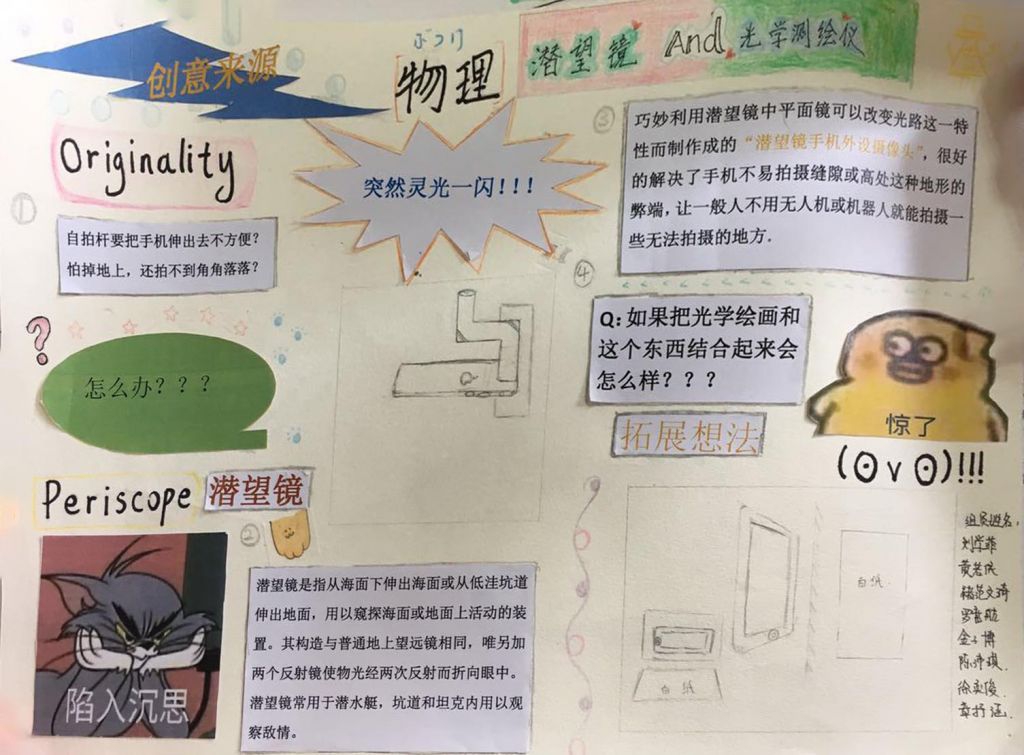 创意来源
ぶつり
物理
潜望镜 And 光学测绘仪
Originality
①
自拍杆要把手机伸出去不方便?
怕掉地上，还拍不到角角落落?
突然灵光一闪!!!
?
怎么办? ? ?
Periscope 潜望镜
②
陷入沉思
潜望镜是指从海面下伸出海面或从低洼坑道
伸出地面，用以窥探海面或地面上活动的装
置。其构造与普通地上望远镜相同，唯另加
两个反射镜使物光经两次反射而折向眼中。
潜望镜常用于潜水艇，坑道和坦克内用以观
察敌情。
③
巧妙利用潜望镜中平面镜可以改变光路这一特
性而制作成的“潜望镜手机外设摄像头”，很好
的解决了手机不易拍摄缝隙或高处这种地形的
弊端，让一般人不用无人机或机器人就能拍摄一
些无法拍摄的地方.
④
Q:如果把光学绘画和
这个东西结合起来会
怎么样? ? ?
拓展想法
惊了
(ʘ v ʘ)!!!
白纸
白纸